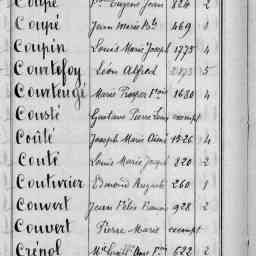 Coupé Eugène Jean 824 2
Coupé Jean Marie 469 1
Coupin Louis Marie Joseph 1775 4
Courtefoy Léon Alfred 5
Marie Prosper 1680 4
Cousté Gustave Pierre exempt
Coûté Joseph Marie Aimé 1526 4
Couté Louis Marie Joseph 820 2
Couturier Edmond Auguste 260 1
Couvert Jean Félix 928 2
Couvert Pierre Marie exempt
Crénol 622 2